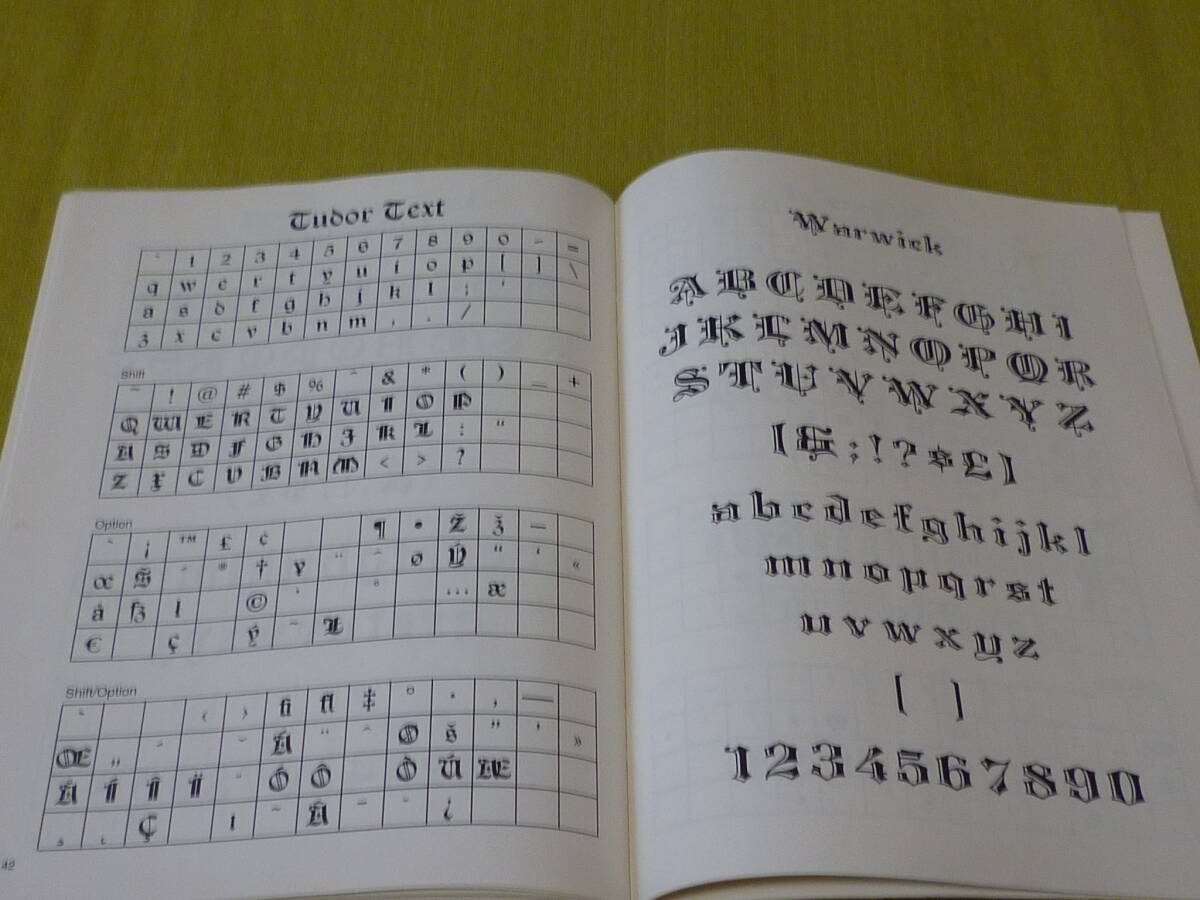 Tudor Text
` 1 2 3 4 5 6 7 8 9 0 - =
q w e r t y u i o p [ ] \
a s d f g h j k l ; '
z x c v b n m , . /
Shift
~ ! @ # $ % ^ & * ( ) _ +
Q W E R T Y U I O P
A S D F G H J K L : "
Z X C V B N M < > ?
Option
` ¡ ™ £ ¢ ¶ • Ž ž –
œ Š ´ ® † ¥ ¨ ˆ ø Ý “ ‘ «
å ß ł © ˙ … æ
€ ç ý ˜ Ł
Shift/Option
‹ › fi fl ‡ ° · ‚ —
Œ „ ˇ Á ¨ ˆ Ø š ” ’ »
Å Í Î Ï ˝ Ó Ô Ò Ú Æ
¸ ˛ Ç ı ˜ Â ¯ ˘ ¿
42
Warwick
A B C D E F G H I
J K L M N O P Q R
S T U V W X Y Z
[ & ; ! ? $ £ ]
a b c d e f g h i j k l
m n o p q r s t
u v w x y z
[ ]
1 2 3 4 5 6 7 8 9 0